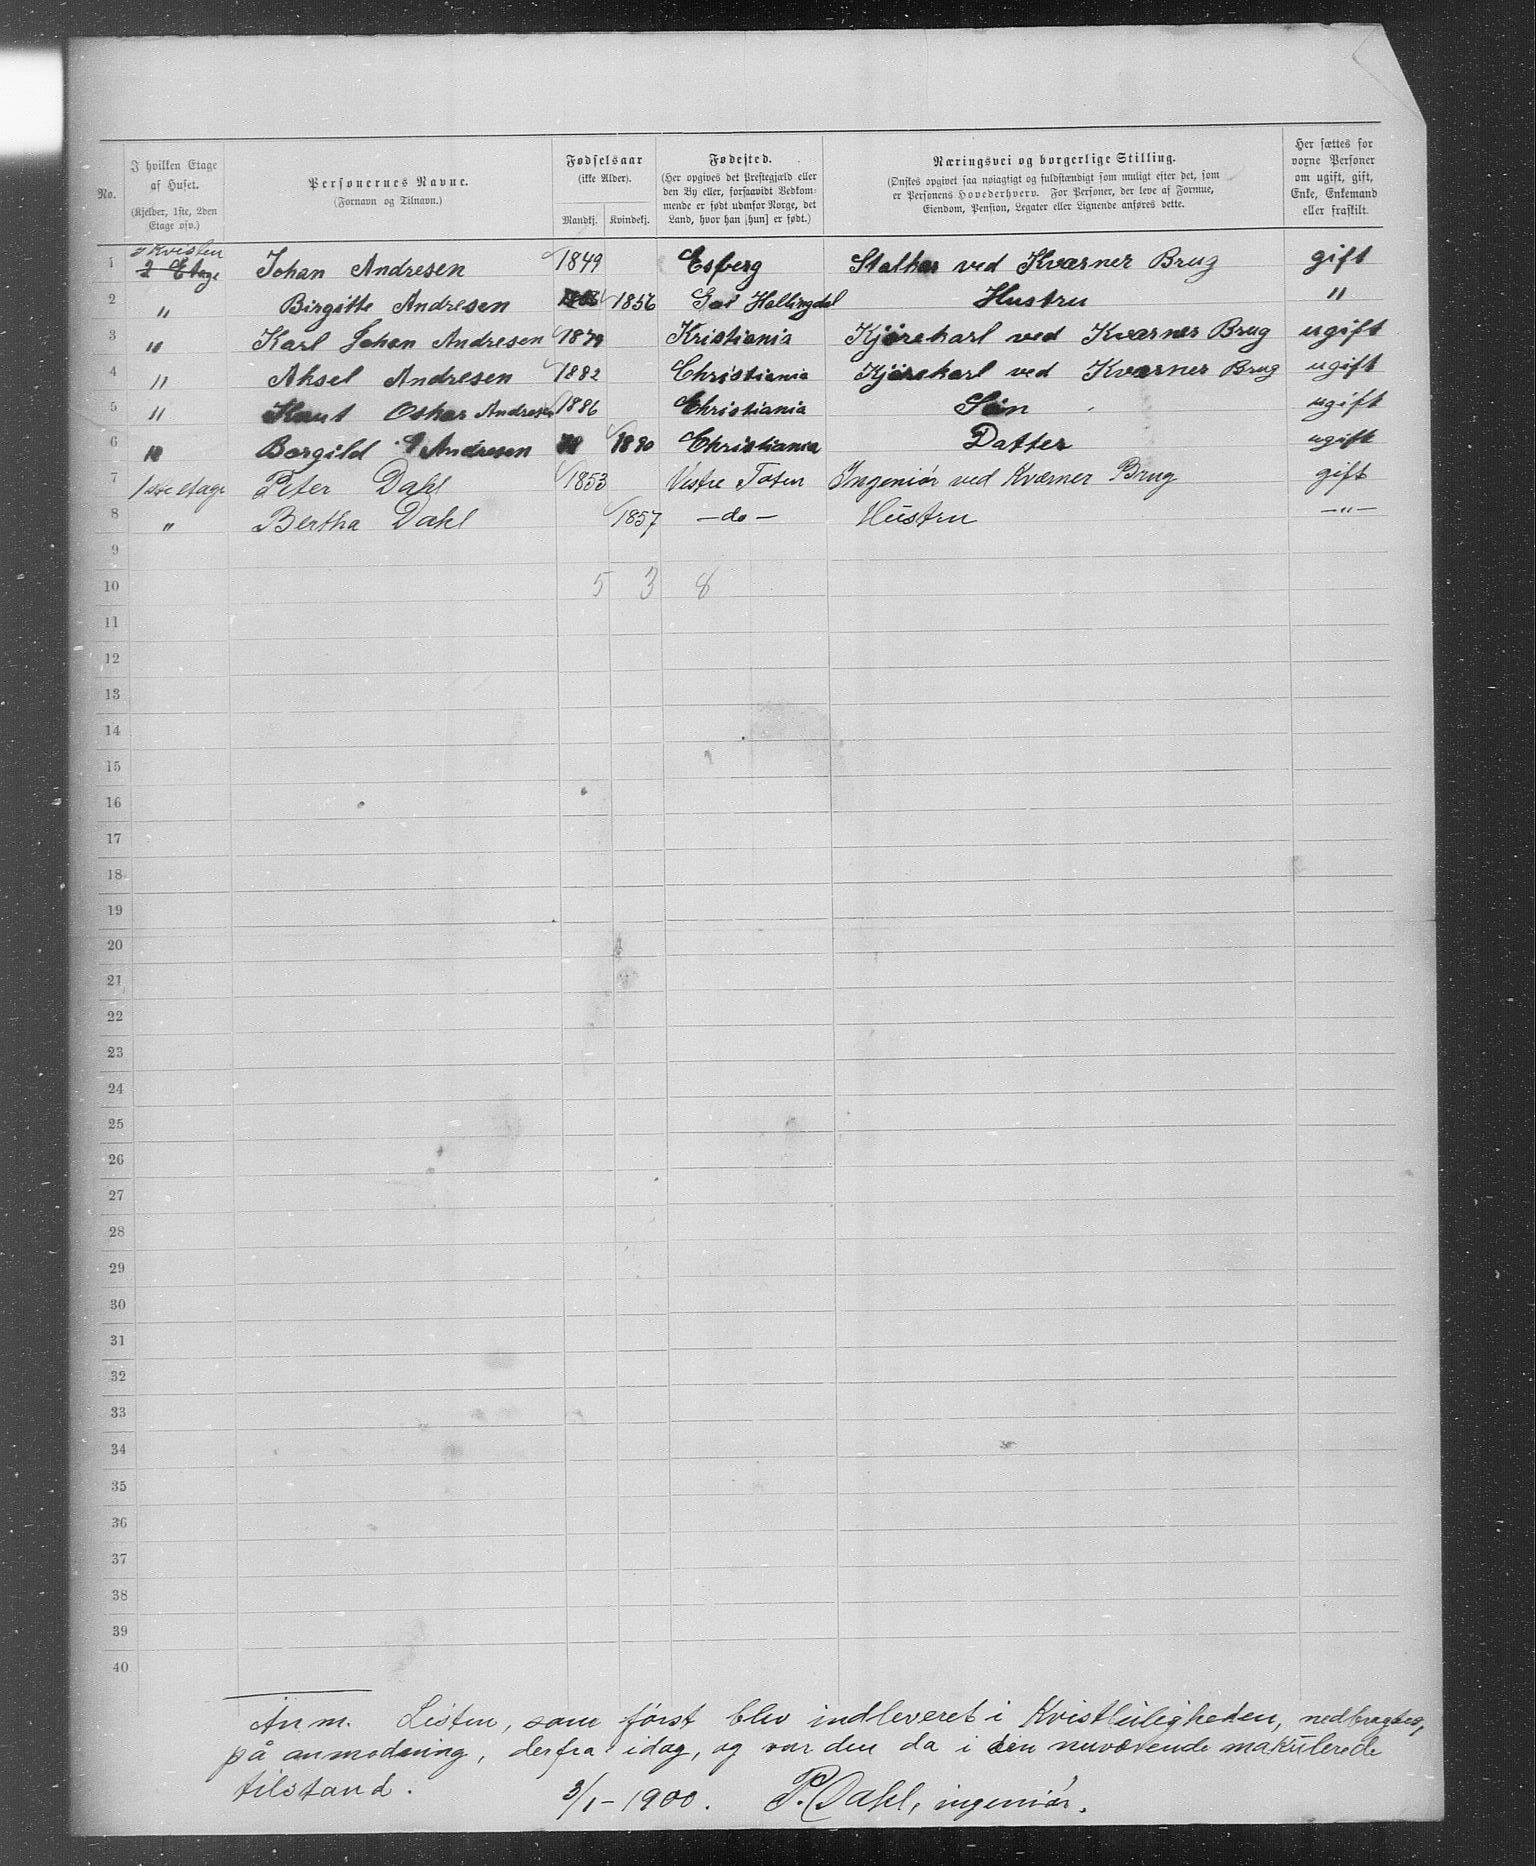 No.
I hvilken Etage
af Huset.
(Kjelder, 1ste, 2den
Etage osv.)
Personernes Navne.
(Fornavn og Tilnavn.)
Fødselsaar
(ikke Alder).
Mandkj. Kvindekj.
Fødested.
(Her opgives det Prestegjæld eller
den By eller, forsaavidt Vedkom-
mende er født udenfor Norge, det
Land, hvor han [hun] er født.)
Næringsvei og borgerlige Stilling.
(Ønskes opgivet saa nøiagtigt og fuldstændigt som muligt efter det, som
er Personens Hovederhverv. For Personer, der leve af Formue,
Eiendom, Pension, Legater eller Lignende anføres dette.
Her sættes for
voxne Personer
om ugift, gift,
Enke, Enkemand
eller fraskilt.
Kvisten
1 2 Etage Johan Andresen 1849 Esberg ved Kværner Brug gift
2 " Birgitte Andresen 1856 Gol Hallingdal Hustru "
3 " Karl Johan Andresen 1879 Kristiania Kjørekarl ved Kværner Brug ugift
4 " Aksel Andresen 1882 Christiania Kjørekarl ved Kværner Brug ugift
5 " Knut Oskar Andresen 1886 Christiania Søn ugift
6 " Borgild Andresen 1890 Christiania Datter ugift
7 1ste etage Peter Dahl 1853 Vestre Toten Ingeniør ved Kværner Brug gift
8 " Bertha Dahl 1857 — do — Hustru — " —
9
10 5 3 8
11
12
13
14
15
16
17
18
19
20
21
22
23
24
25
26
27
28
29
30
31
32
33
34
35
36
37
38
39
40
Anm. Listen, som først blev indleveret i Kvistleiligheden, nedbragtes,
på anmodning, derfra idag, og var den da i sin nuværende makulerede
tilstand.
3/1-1900. P. Dahl, ingeniør.